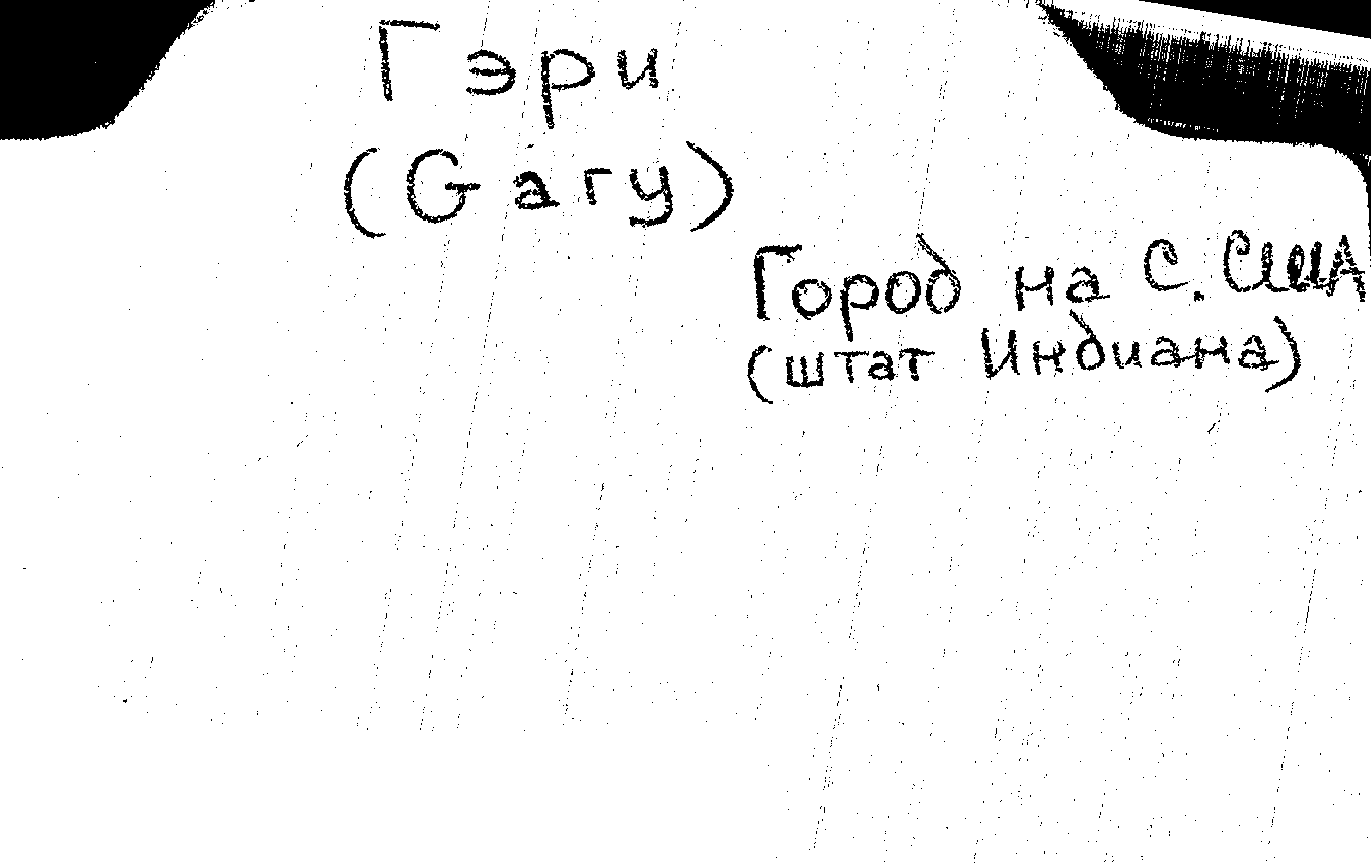 Гэри
(Gary)
Город на С. США
(штат Индиана)